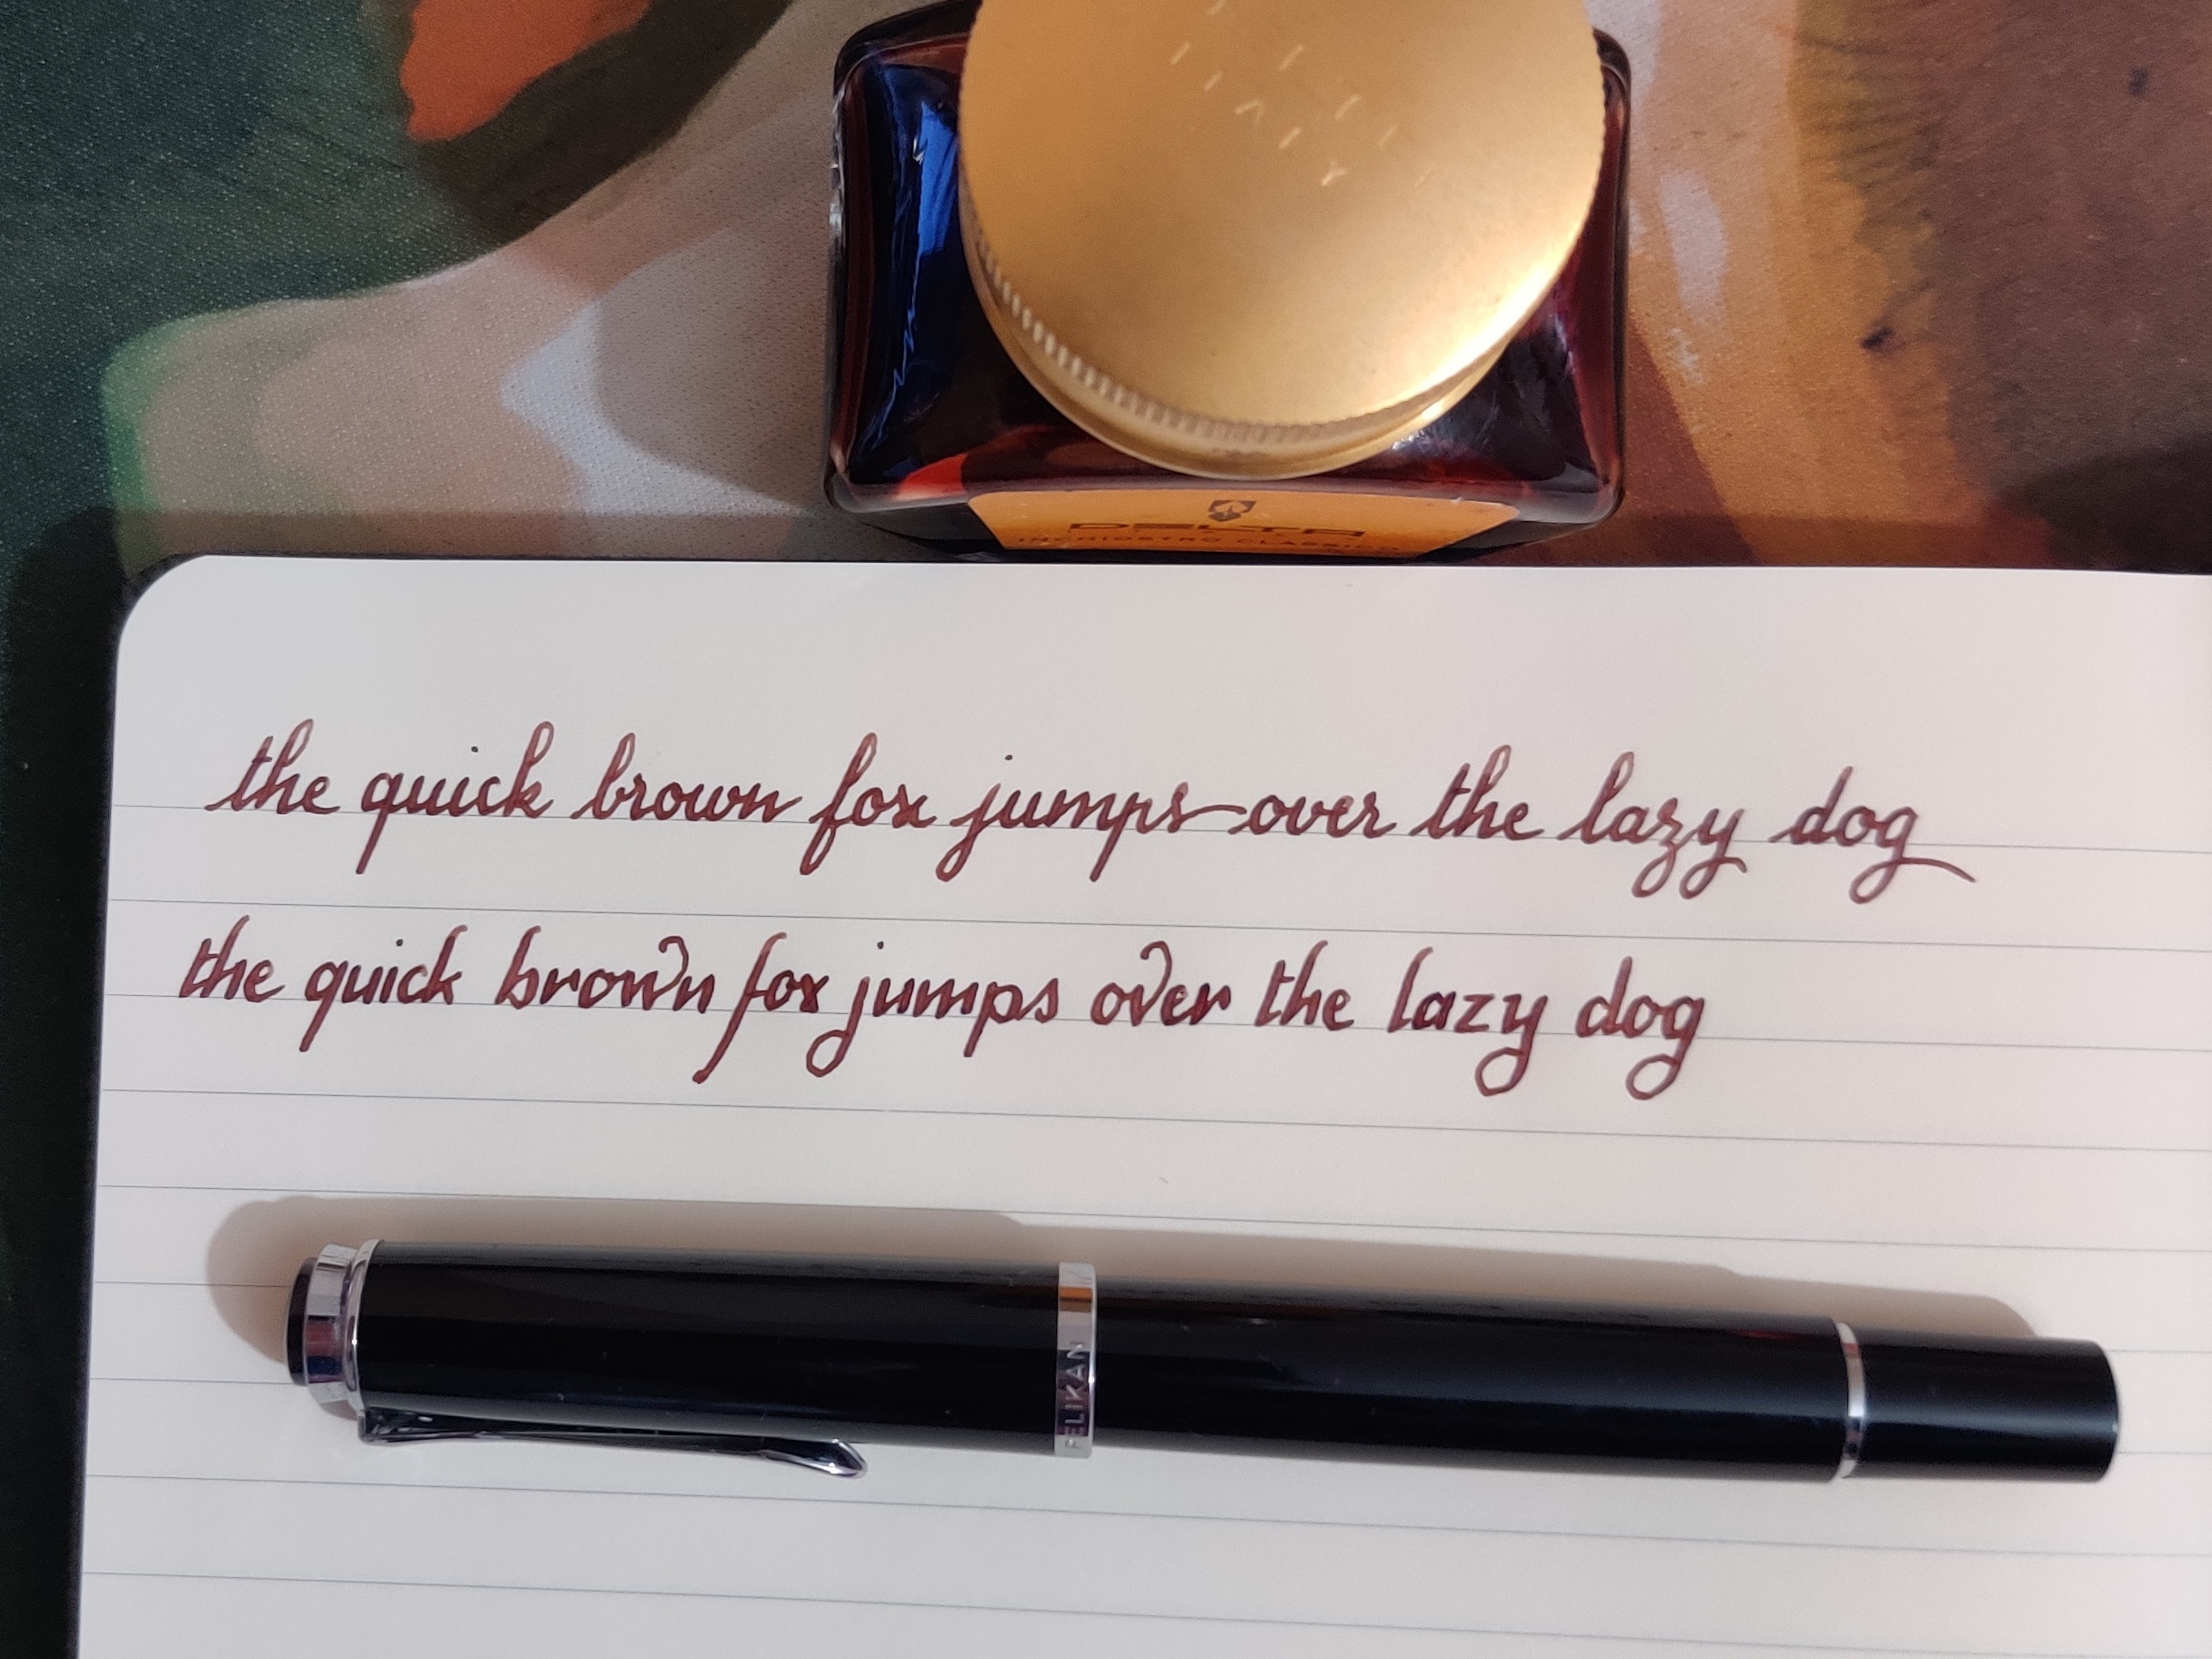 DELTA
INCHIOSTRO CLASSICO
the quick brown fox jumps over the lazy dog
the quick brown fox jumps over the lazy dog
PELIKAN